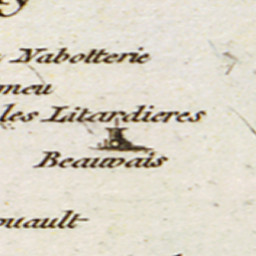 Nabotterie
meu
les Litardieres
Beauvais
ouault